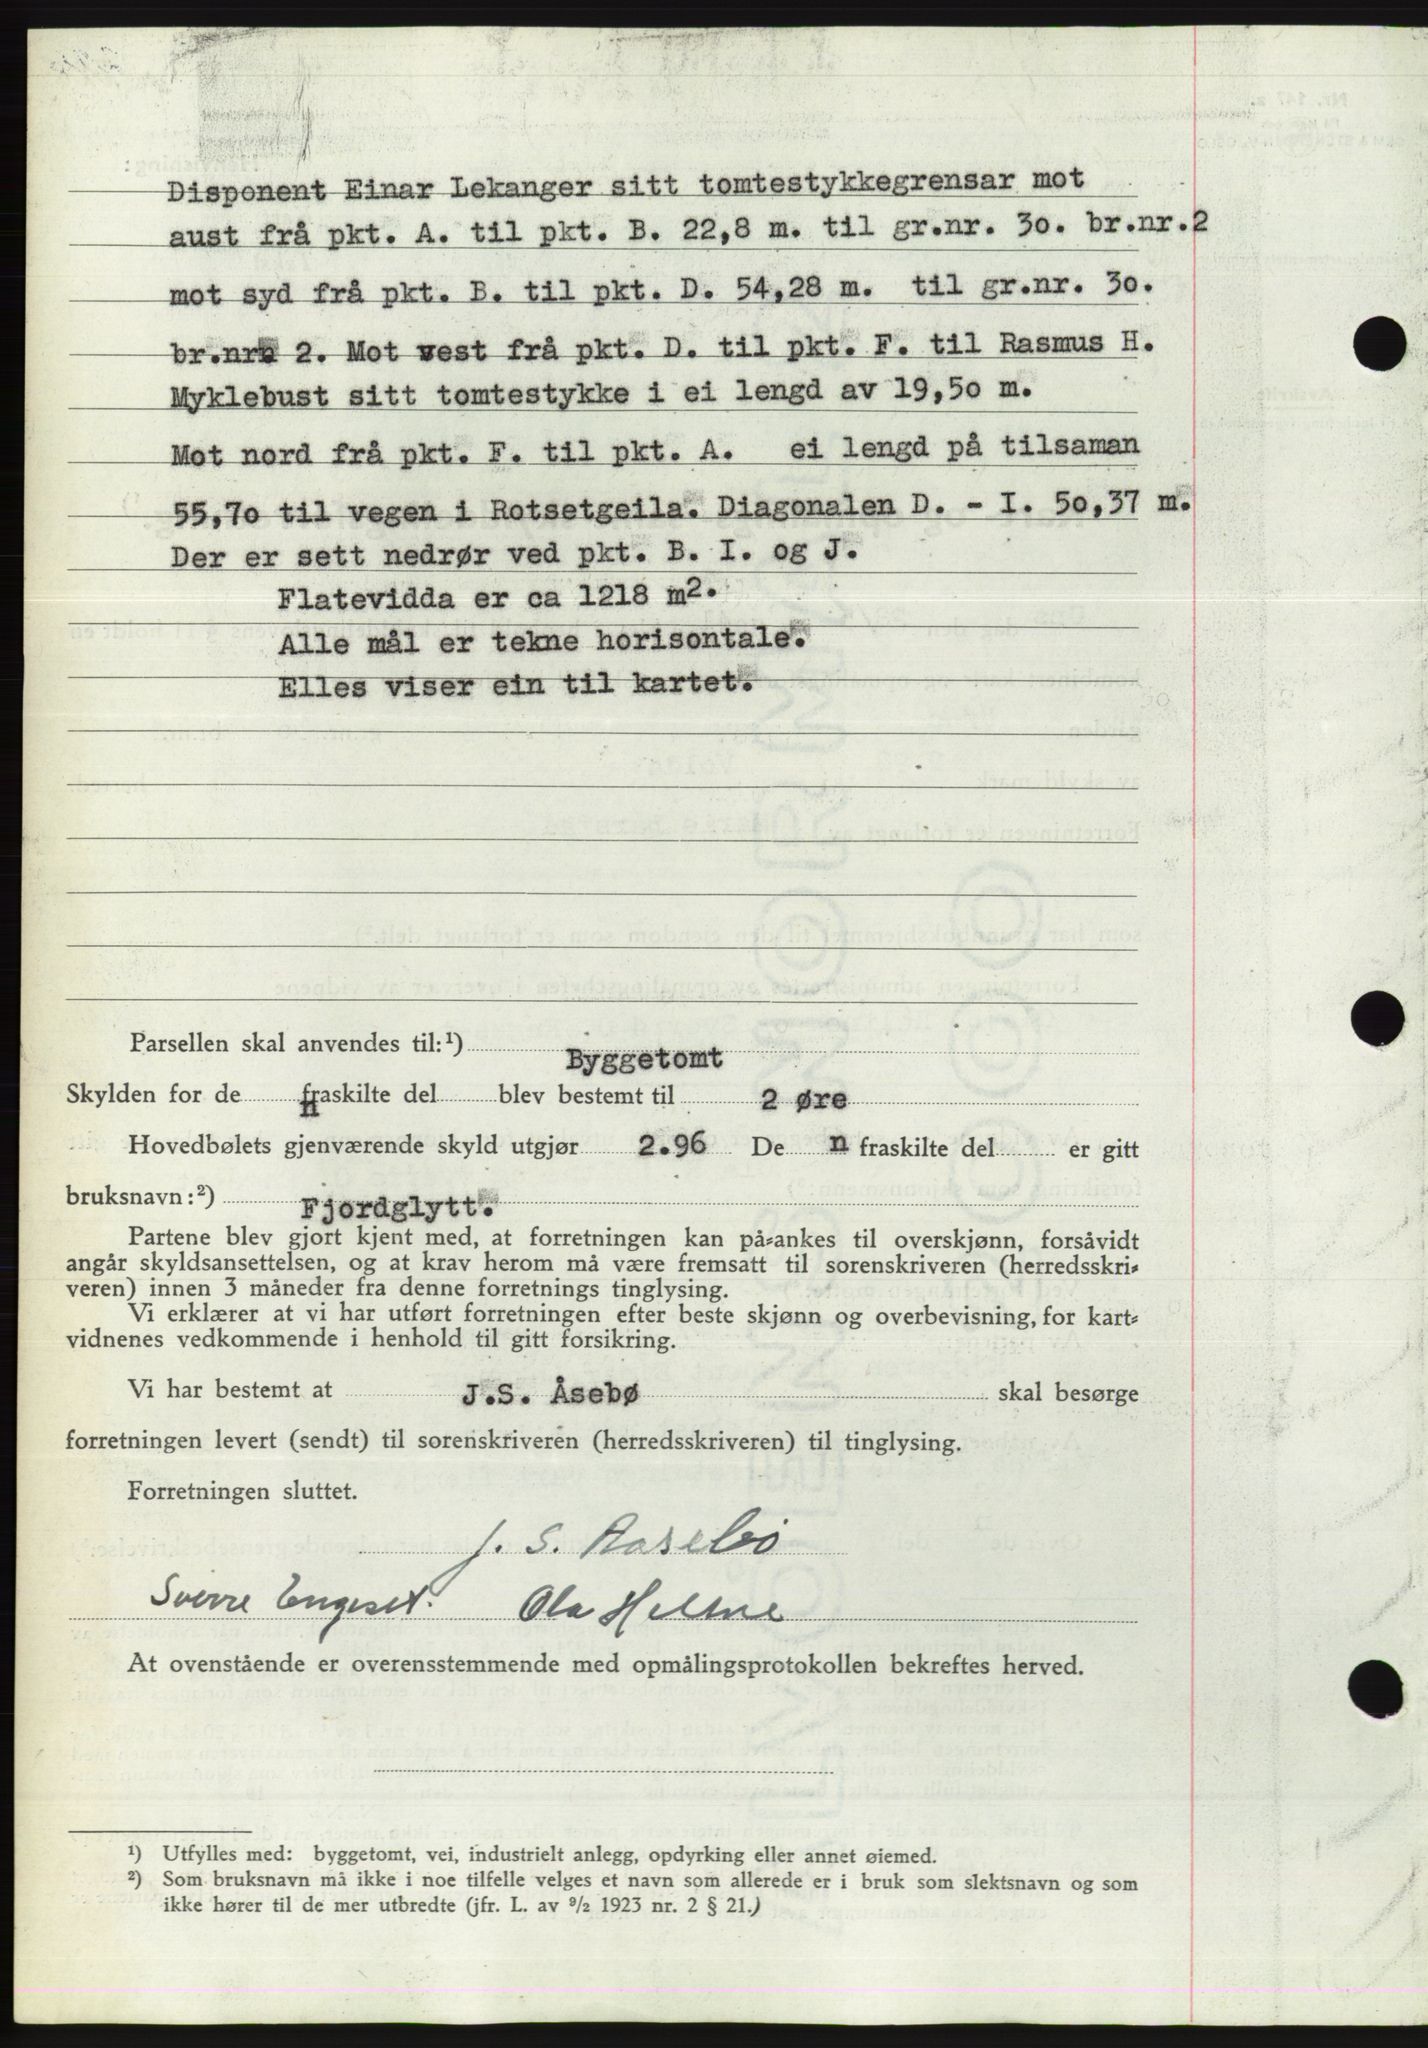 Disponent Einar Lekanger sitt tomtestykkegrensar mot
aust frå pkt. A. til pkt. B. 22,8 m. til gr.nr. 30. br.nr.2
mot syd frå pkt. B. til pkt. D. 54,28 m. til gr.nr. 30.
br.nr. 2. Mot vest frå pkt. D. til pkt. F. til Rasmus H.
Myklebust sitt tomtestykke i ei lengd av 19,50 m.
Mot nord frå pkt. F. til pkt. A. ei lengd på tilsaman
55,70 til vegen i Rotsetgeila. Diagonalen D. - I. 50,37 m.
Der er sett nedrør ved pkt. B. I. og J.
Flatevidda er ca 1218 m2.
Alle mål er tekne horisontale.
Elles viser ein til kartet.
Parsellen skal anvendes til:¹) Byggetomt
Skylden for de fraskilte del blev bestemt til 2 øre
Hovedbølets gjenværende skyld utgjør 2.96 De n fraskilte del er gitt
bruksnavn:²) Fjordglytt.
Partene blev gjort kjent med, at forretningen kan på-ankes til overskjønn, forsåvidt
angår skyldsansettelsen, og at krav herom må være fremsatt til sorenskriveren (herredsskri-
veren) innen 3 måneder fra denne forretnings tinglysing.
Vi erklærer at vi har utført forretningen efter beste skjønn og overbevisning, for kart-
vidnenes vedkommende i henhold til gitt forsikring.
Vi har bestemt at J.S. Åsebø skal besørge
forretningen levert (sendt) til sorenskriveren (herredsskriveren) til tinglysing.
Forretningen sluttet.
J. S. Aasebø
Sverre Engeset. Ola
At ovenstående er overensstemmende med opmålingsprotokollen bekreftes herved.
¹) Utfylles med: byggetomt, vei, industrielt anlegg, opdyrking eller annet øiemed.
²) Som bruksnavn må ikke i noe tilfelle velges et navn som allerede er i bruk som slektsnavn og som
ikke hører til de mer utbredte (jfr. L. av 9/2 1923 nr. 2 § 21.)